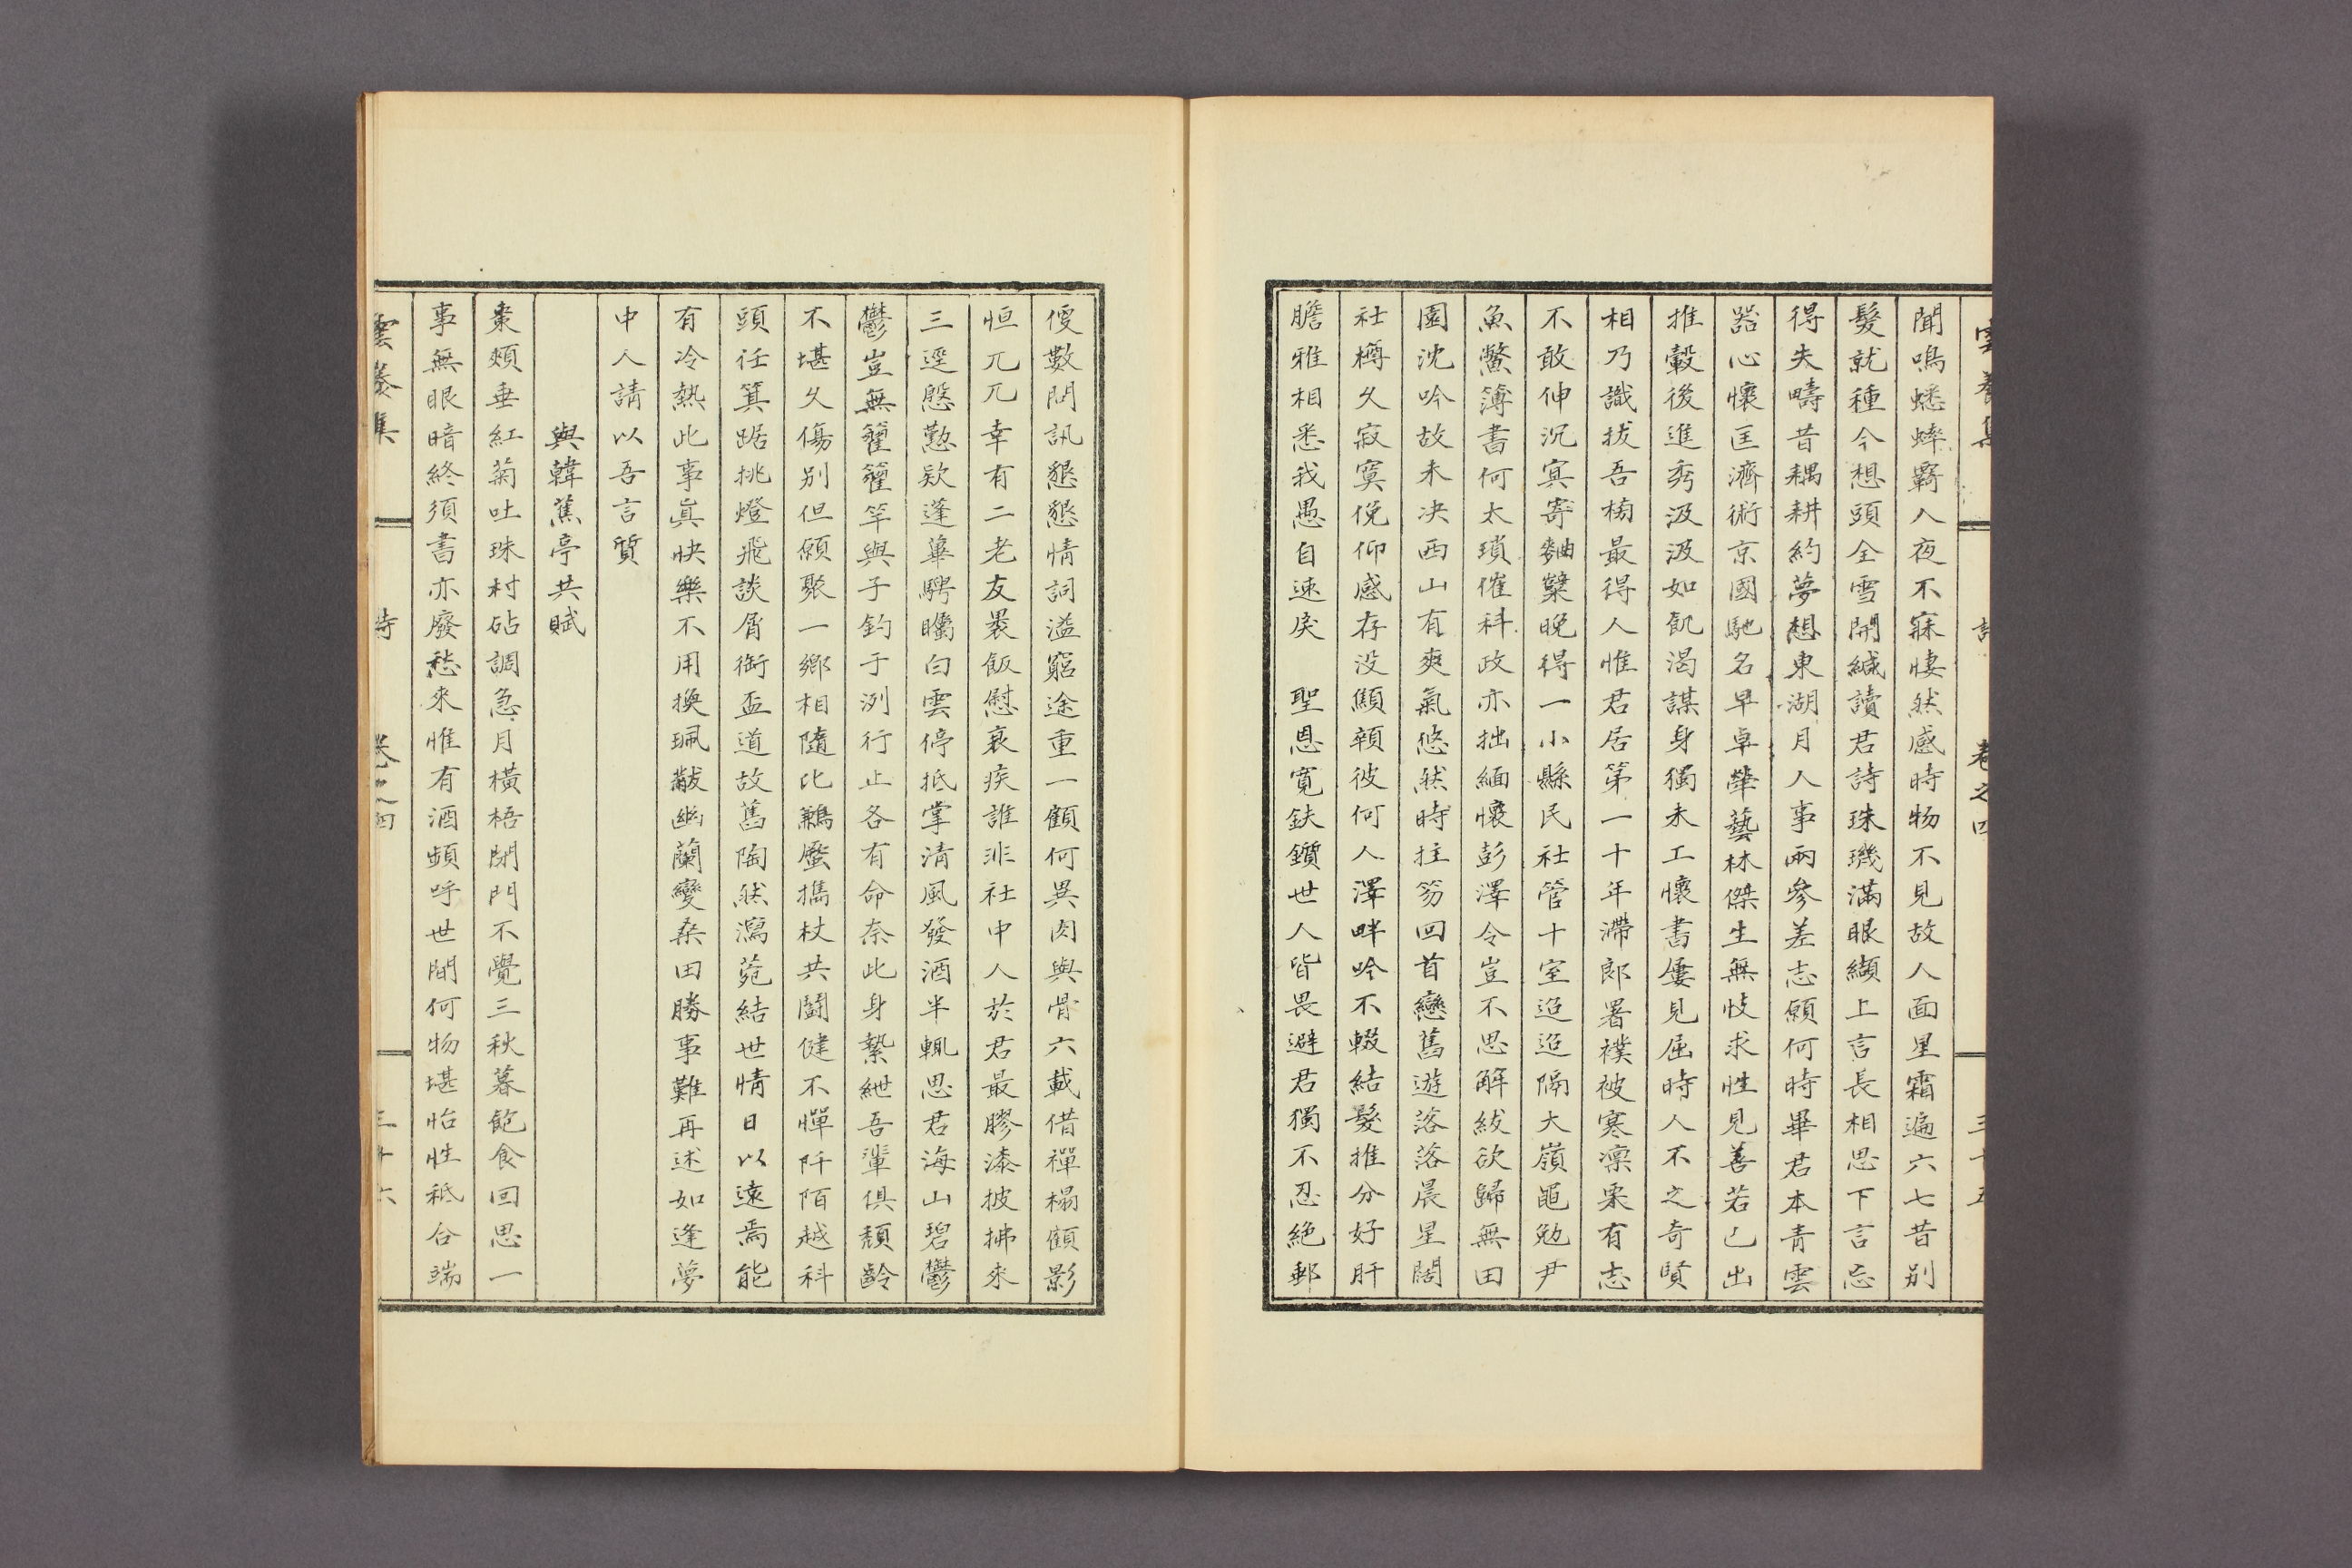 雲養集 詩 卷之四 三十五
聞鳴蟋蟀霸入夜不寐悽然感時物不見故人面星霜遍六七昔別
髮就種今想頭全雪開緘讀君詩珠璣滿眼纈上言長相思下言忘
得失疇昔耦耕約夢想東湖月人事兩參差志願何時畢君本青雲
器心懷匡濟術京國馳名早卓犖藝林傑生無忮求性見善若己出
推轂後進秀汲汲如飢渴謀身獨未工懷書屢見屈時人不之奇賢
相乃識拔吾榜最得人惟君居第一十年滯郎署襆被寒凜栗有志
不敢伸沉冥寄麯糱晚得一小縣民社管十室迢迢隔大嶺黽勉尹
魚鱉簿書何太瑣催科政亦拙緬懷彭澤令豈不思解紱欲歸無田
園沈吟故未决西山有爽氣悠然時拄笏回首戀舊遊落落晨星闊
社樽久寂寞俛仰感存没顯顇彼何人澤畔吟不輟結髮推分好肝
膽雅相悉我愚自速戾 聖恩寬鈇鑕世人皆畏避君獨不忍絶郵
便數問訊懇懇情詞溢窮途重一顧何異肉與骨六載借禪榻顧影
恒兀兀幸有二老友裹飯慰衰疾誰非社中人於君最膠漆披拂來
三逕慇懃欵蓬蓽騁矚白雲停抵掌清風發酒半輒思君海山碧鬱
鬱豈無籊籊竿與子釣于洌行止各有命奈此身縶紲吾輩俱頹齡
不堪久傷別但願聚一鄉相隨比鶼蟨携杖共鬪健不憚阡陌越科
頭任箕踞挑燈飛談屑銜盃道故舊陶然瀉菀結世情日以遠焉能
有冷熱此事眞快樂不用換珮黻幽蘭變桑田勝事難再述如逢夢
中人請以吾言質
與韓蕉亭共賦
棗頰垂紅菊吐珠村砧調急月橫梧閉門不覺三秋暮飽食回思一
事無眼暗終須書亦廢愁來惟有酒頻呼世間何物堪怡性秪合端
雲養集 詩 卷之四 三十六